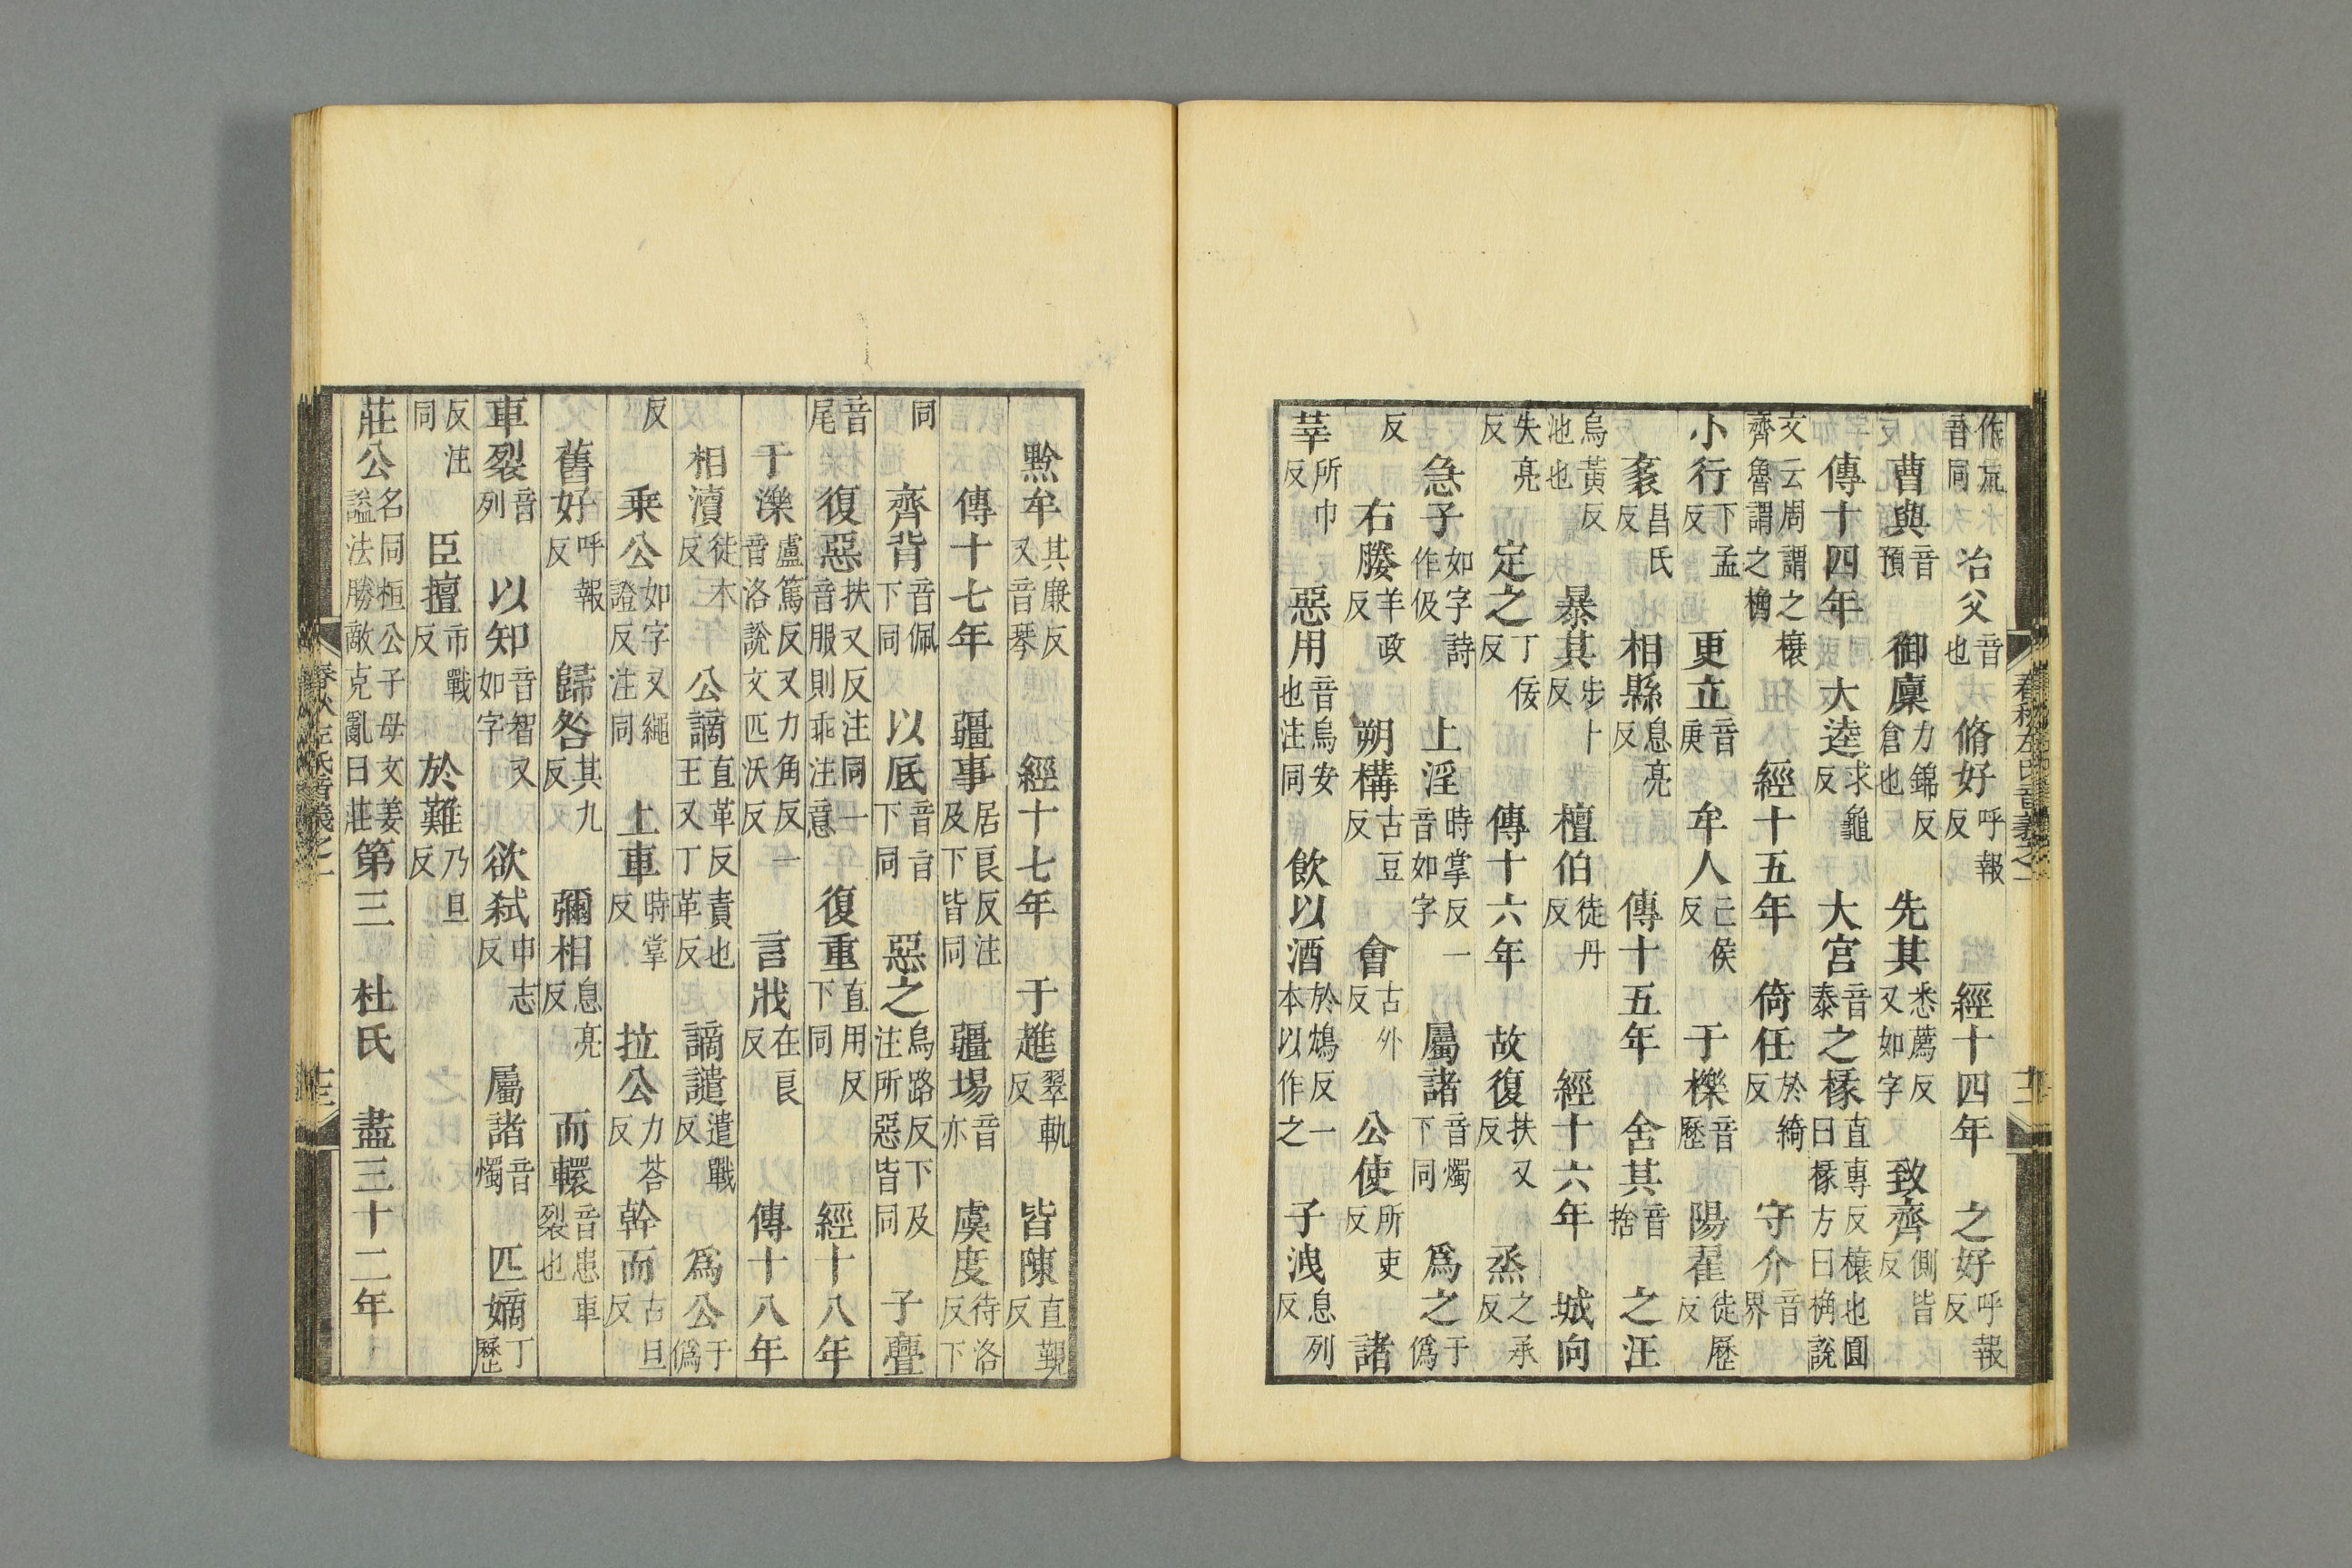 作㡆音同 冶父音也 脩好呼報反 經十四年 之好呼報反
曹與音預 御廩力錦反倉也 先其悉薦反又如字 致齊側皆反
傳十四年 大逵求龜反 大宮音泰 之椽直專反榱也圓曰椽方曰桷說
文云周謂之榱齊魯謂之桷 經十五年 倚任於綺反 守介音界
小行下孟反 更立音庚 牟人亡侯反 于櫟音歷 陽翟徒歷反
袲昌氏反 相縣息亮反 傳十五年 舍其音捨 之汪
烏黃反池也 暴其步卜反 檀伯徒丹反 經十六年 城向
失亮反 定之丁佞反 傳十六年 故復扶又反 烝之承反
急子如字詩作伋 上淫時掌反一音如字 屬諸音燭下同 爲之于僞
反 右媵羊政反 朔構古豆反 會古外反 公使所吏反 諸
莘所巾反 惡用音烏安也注同 飲以酒於鴆反一本以作之 子洩息列反
春秋左氏音義之一
黔牟其廉反又音琴 經十七年 于趡翠軌反 皆陳直覲反
傳十七年 疆事居良反注及下皆同 疆埸音亦 虞度待洛反下
同 齊背音佩下同 以厎音旨下同 惡之烏路反下及注所惡皆同 子亹
音尾 復惡扶又反注同一音服則乖注意 復重直用反下同 經十八年
于濼盧篤反又力角反一音洛說文匹沃反 言戕在良反 傳十八年
相瀆徒木反 公讁直革反責也王又丁革反 讁譴遣戰反 爲公于僞
反 乗公如字又繩證反注同 上車時掌反 拉公力荅反 幹而古旦反
舊好呼報反 歸咎其九反 彌相息亮反 而轘音患車裂也
車裂音列 以知音智又如字 欲弑申志反 屬諸音燭 匹嫡丁歷
反注同 臣擅市戰反 於難乃旦反
莊公名同桓公子母文姜謚法勝敵克亂曰莊第三 杜氏 盡三十二年
春秋左氏音義之一 十三